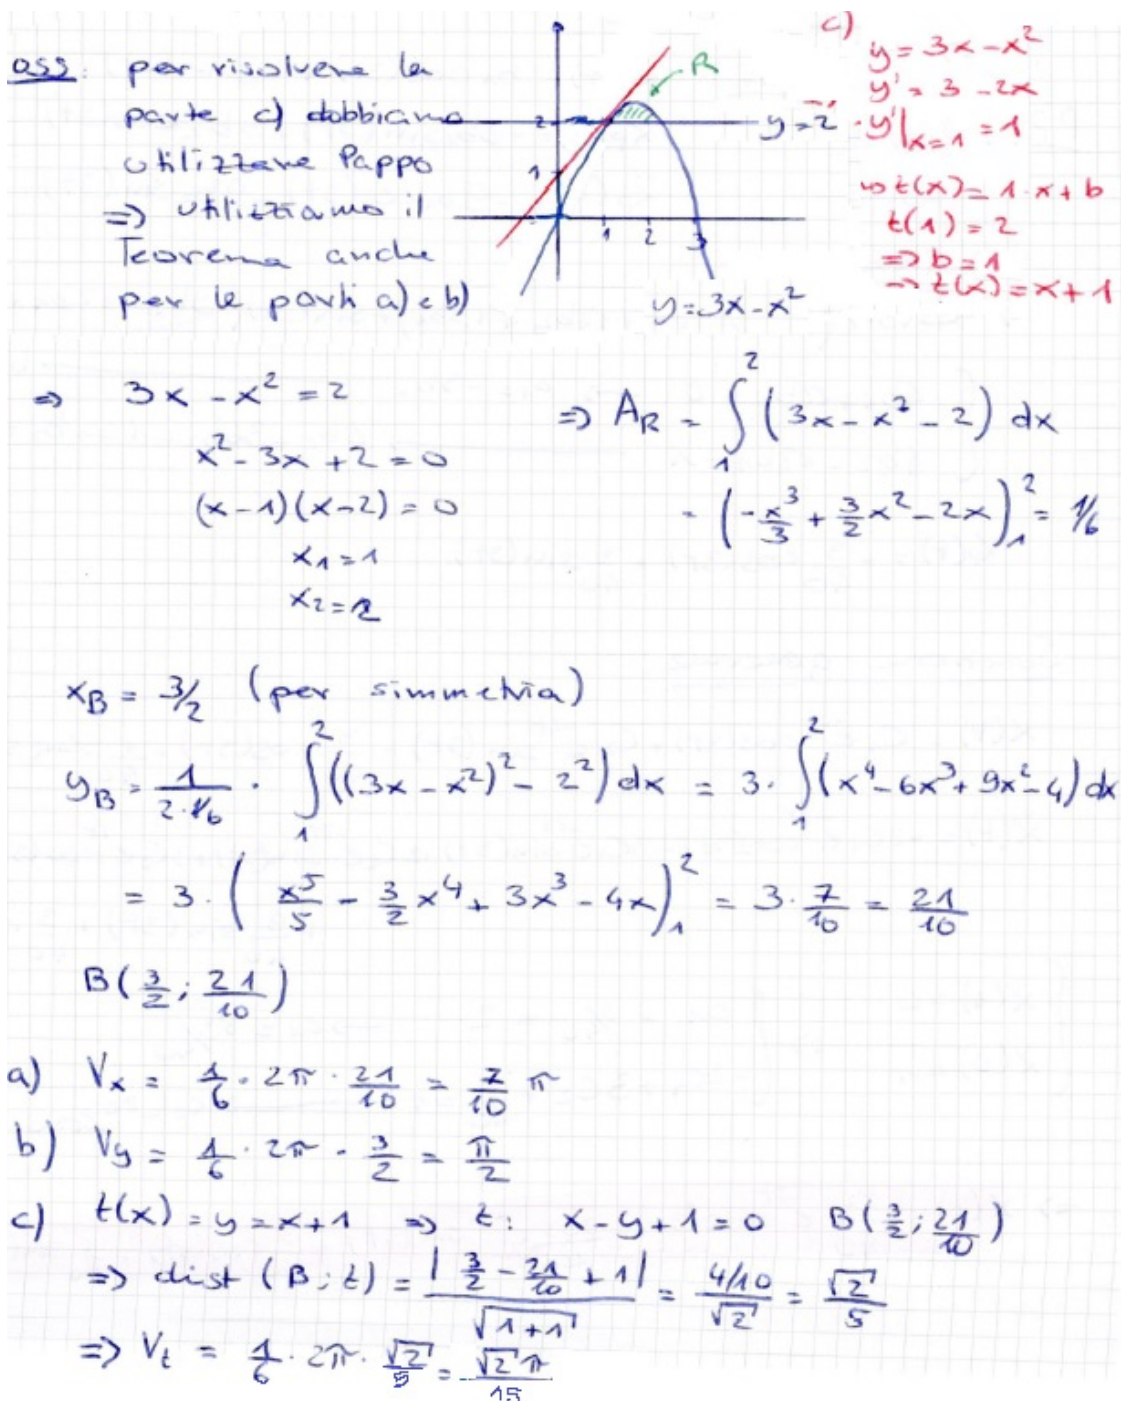 oss: per risolvere la
parte c) dobbiamo
utilizzare Pappo
=> utilizziamo il
Teorema anche
per le parti a) e b)
R
y=2
2
1
1 2 3
y=3x-x²
c)
y=3x-x²
y'=3-2x
y'|x=1 =1
t(x)=1·x+b
t(1)=2
=> b=1
=> t(x)=x+1
=> 3x-x²=2
x²-3x+2=0
(x-1)(x-2)=0
x₁=1
x₂=2
=> A_R = ∫₁² (3x-x²-2) dx
= (-x³/3 + 3/2 x² - 2x)₁² = 1/6
x_B = 3/2 (per simmetria)
y_B = 1/(2·1/6) · ∫₁² ((3x-x²)²-2²) dx = 3·∫₁² (x⁴-6x³+9x²-4) dx
= 3·( x⁵/5 - 3/2 x⁴ + 3x³ - 4x)₁² = 3·7/10 = 21/10
B(3/2; 21/10)
a) Vx = 1/6 · 2π · 21/10 = 7/10 π
b) Vy = 1/6 · 2π · 3/2 = π/2
c) t(x) = y = x+1 => t: x-y+1=0 B(3/2; 21/10)
=> dist (B; t) = |3/2 - 21/10 + 1| / √(1+1) = (4/10)/√2 = √2/5
=> V_t = 1/6 · 2π · √2/5 = √2 π/15